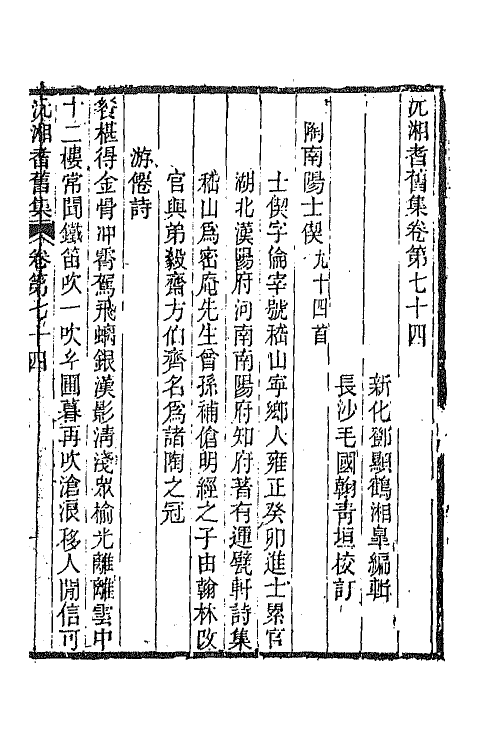 沅湘耆舊集卷第七十四
新化鄧顯鶴湘臯編輯
長沙毛國翰靑垣校訂
陶南陽士僙九十四首
士僙字倫宰號嵇山寧鄉人雍正癸卯進士累官
湖北漢陽府河南南陽府知府著有運甓軒詩集
嵇山爲密庵先生曾孫補傖明經之子由翰林改
官與弟毅齋方伯齊名爲諸陶之冠
游僊詩
餐椹得金骨冲霄駕飛螭銀漢影淸淺衆楡光離離雲中
十二樓常聞鐵笛吹一吹圃暮再吹滄浪移人閒信可
沅湘耆舊集卷第七十四